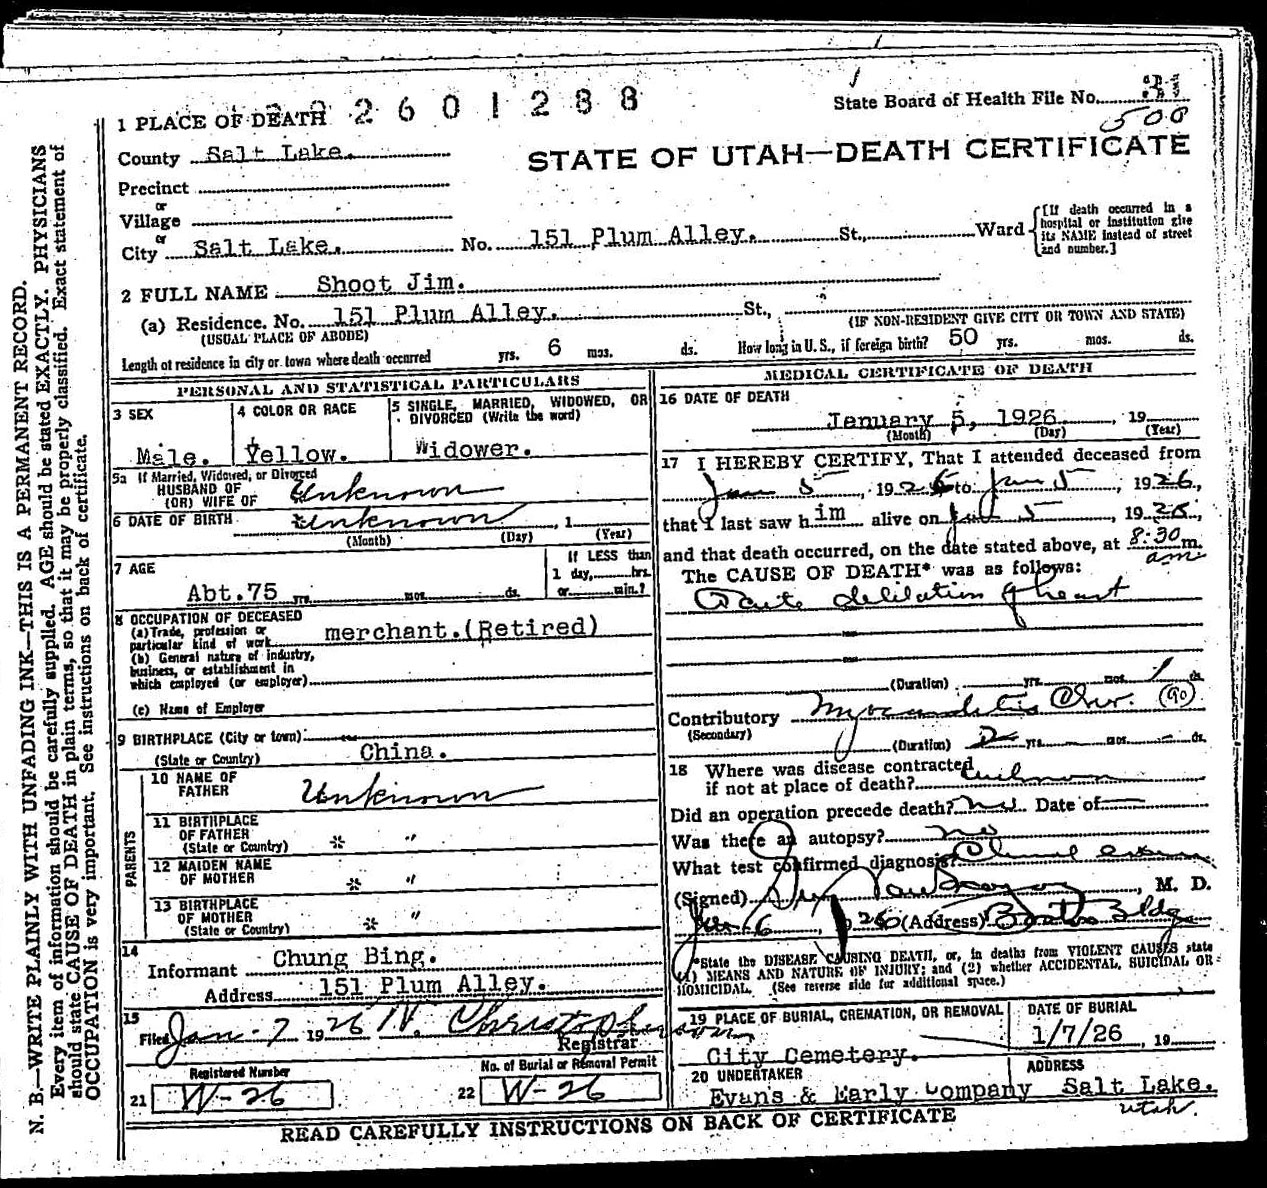 2601288
State Board of Health File No.
500
1 PLACE OF DEATH
STATE OF UTAH—DEATH CERTIFICATE
County Salt Lake.
Precinct
or
Village
or
City Salt Lake. No. 151 Plum Alley. St., Ward
[If death occurred in a
hospital or institution give
its NAME instead of street
and number.]
2 FULL NAME Shoot Jim.
(a) Residence. No. 151 Plum Alley. St.,
(USUAL PLACE OF ABODE) (IF NON-RESIDENT GIVE CITY OR TOWN AND STATE)
Length of residence in city or town where death occurred yrs. 6 mos. ds. How long in U. S., if foreign birth? 50 yrs. mos. ds.
PERSONAL AND STATISTICAL PARTICULARS
3 SEX
Male.
4 COLOR OR RACE
Yellow.
5 SINGLE, MARRIED, WIDOWED, OR
DIVORCED (Write the word)
Widower.
5a If Married, Widowed, or Divorced
HUSBAND OF
(OR) WIFE OF Unknown
6 DATE OF BIRTH Unknown , 1
(Month) (Day) (Year)
7 AGE
Abt. 75 yrs. mos. ds.
If LESS than
1 day, hrs.
or min.?
8 OCCUPATION OF DECEASED
(a) Trade, profession or
particular kind of work merchant. (Retired)
(b) General nature of industry,
business, or establishment in
which employed (or employer)
(c) Name of Employer
9 BIRTHPLACE (City or town)
(State or Country) China.
PARENTS
10 NAME OF
FATHER Unknown
11 BIRTHPLACE
OF FATHER
(State or Country) " "
12 MAIDEN NAME
OF MOTHER " "
13 BIRTHPLACE
OF MOTHER
(State or Country) " "
14
Informant Chung Bing.
Address 151 Plum Alley.
15
Filed Jan-7 1926 N. Christopherson
Registrar
Registered Number
21 W-26
No. of Burial or Removal Permit
22 W-26
MEDICAL CERTIFICATE OF DEATH
16 DATE OF DEATH
January 5, 1926. , 19
(Month) (Day) (Year)
17 I HEREBY CERTIFY, That I attended deceased from
Jan 5 , 1926 to Jan 5 , 1926,
that I last saw him alive on Jan 5 , 1926,
and that death occurred, on the date stated above, at 8:30 m.
am
The CAUSE OF DEATH* was as follows:
Acute delilation of heart
(Duration) yrs. mos. 1 ds.
Contributory Myocarditis Chr. (90)
(Secondary)
(Duration) 2 yrs. mos. ds.
18 Where was disease contracted
if not at place of death? unknown
Did an operation precede death? no Date of
Was there an autopsy? no
What test confirmed diagnosis? Clinical exam
(Signed) , M. D.
Jan 6 , 1926 (Address) Boston Bldg
*State the DISEASE CAUSING DEATH, or, in deaths from VIOLENT CAUSES state
(1) MEANS AND NATURE OF INJURY; and (2) whether ACCIDENTAL, SUICIDAL OR
HOMICIDAL. (See reverse side for additional space.)
19 PLACE OF BURIAL, CREMATION, OR REMOVAL
City Cemetery.
DATE OF BURIAL
1/7/26 , 19
20 UNDERTAKER
Evans & Early Company
ADDRESS
Salt Lake.
Utah.
READ CAREFULLY INSTRUCTIONS ON BACK OF CERTIFICATE
N. B.—WRITE PLAINLY WITH UNFADING INK—THIS IS A PERMANENT RECORD.
Every item of information should be carefully supplied. AGE should be stated EXACTLY. PHYSICIANS
should state CAUSE OF DEATH in plain terms, so that it may be properly classified. Exact statement of
OCCUPATION is very important. See instructions on back of certificate.